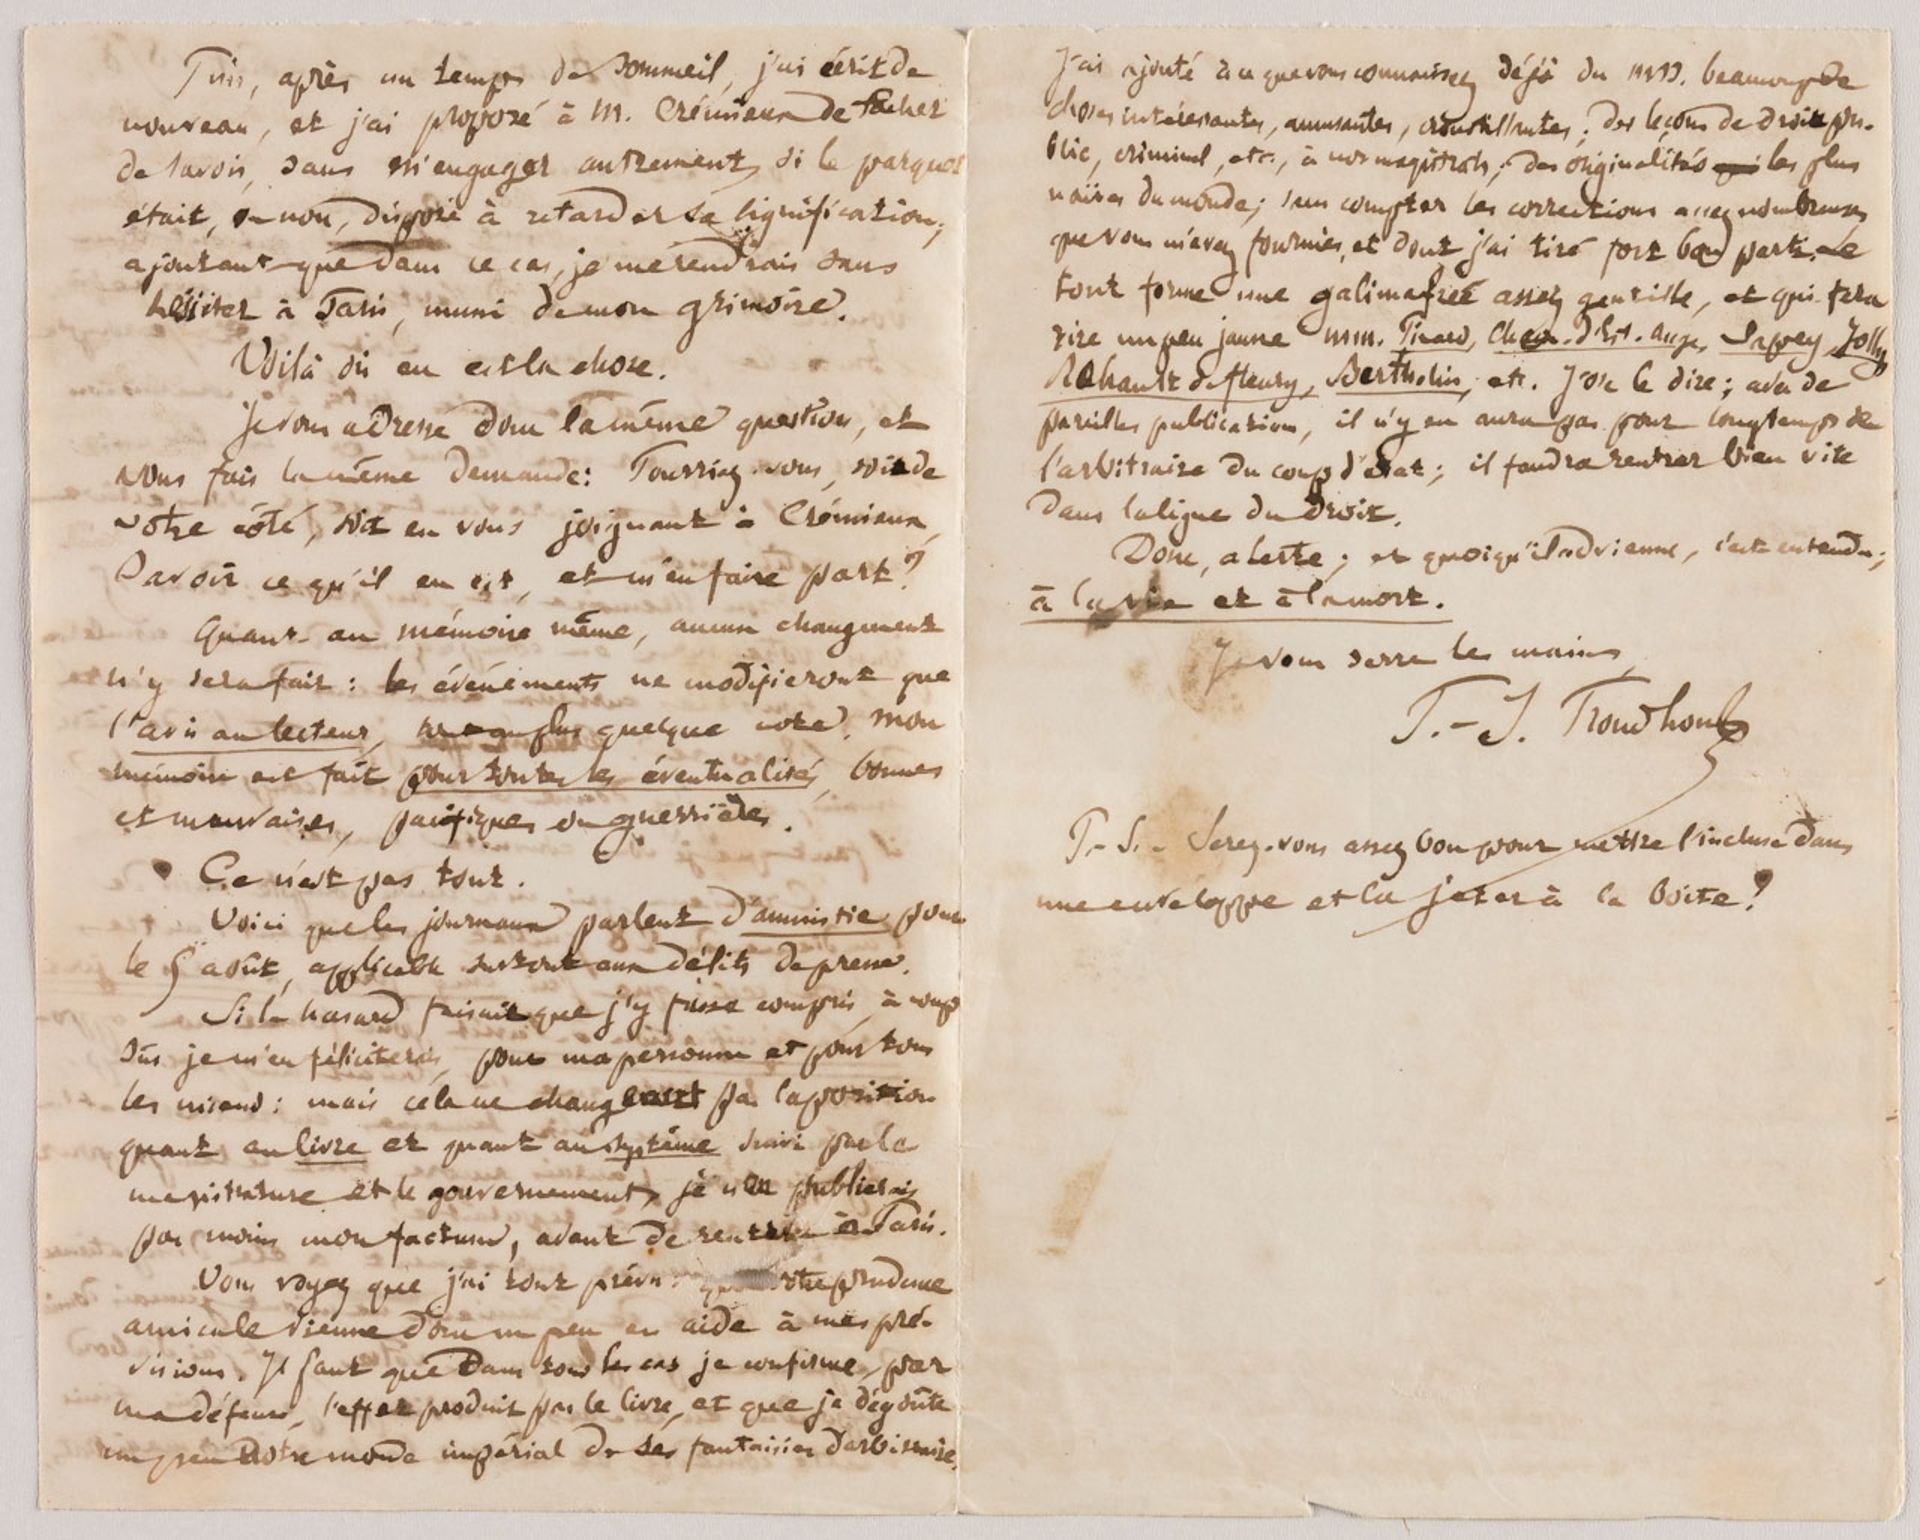 Puis, après un temps de sommeil, j'ai écrit de
nouveau, et j'ai proposé à M. Crémieux de tacher
de savoir, sans m'engager autrement, si le parquet
était, ou non, disposé à retarder sa signification;
ajoutant que dans ce cas, je me rendrais sans
hésiter à Paris, muni de mon grimoire.
Voilà où en est la chose.
Je vous adresse donc la même question, et
vous fais la même demande: Pourriez-vous, soit de
votre côté, soit en vous joignant à Crémieux,
Savoir ce qu'il en est, et m'en faire part?
Quant au mémoire même, aucun changement
n'y sera fait: les événements ne modifieront que
l'avis au lecteur, ou au plus quelque note. Mon
mémoire est fait pour toutes les éventualités, bonnes
et mauvaises, pacifiques ou guerrières.
Ce n'est pas tout.
Voici que les journaux parlent d'amnistie pour
le 15 août, applicable surtout aux délits de presse.
Si le hasard faisait que j'y fusse compris, à coup
sûr je m'en féliciterais, pour ma personne et pour tous
les miens: mais cela ne changeant pas la position
quant au livre et quant au système suivi par la
magistrature et le gouvernement, je n'en publierais
pas moins mon factum, avant de rentrer à Paris.
Vous voyez que j'ai tout prévu: que votre prudence
amicale vienne donc un peu en aide à mes pré-
visions. Il faut que dans tous les cas je confirme, par
ma défense, l'effet produit par le livre, et que je dégoûte
un peu notre monde impérial de ses fantaisies d'arbitraire.
J'ai ajouté à ce que vous connaissez déjà du MSS. beaucoup de
choses intéressantes, amusantes, croustillantes; des leçons de droit pu-
blic, criminel, etc., à nos magistrats; des originalités les plus
naïves du monde; sans compter les corrections assez nombreuses
que vous m'avez fournies, et dont j'ai tiré fort bon parti. Le
tout forme une galimafrée assez gentille, et qui fera
rire un peu jaune MM. Pinard, Chaix-d'Est-Ange, Sapey, Jolly
Rohault de fleury, Bertholin, etc. J'ose le dire; avec de
pareilles publications, il n'y en aura pas pour longtemps de
l'arbitraire du coup d'état; il faudra rentrer bien vite
dans la ligne du droit.
Donc, alerte; et quoiqu'il advienne, c'est entendu;
à la vie et à la mort.
Je vous serre les mains,
P.-J. Proudhon
P.-S.- Serez-vous assez bon pour mettre l'incluse dans
une enveloppe et la jeter à la boite?